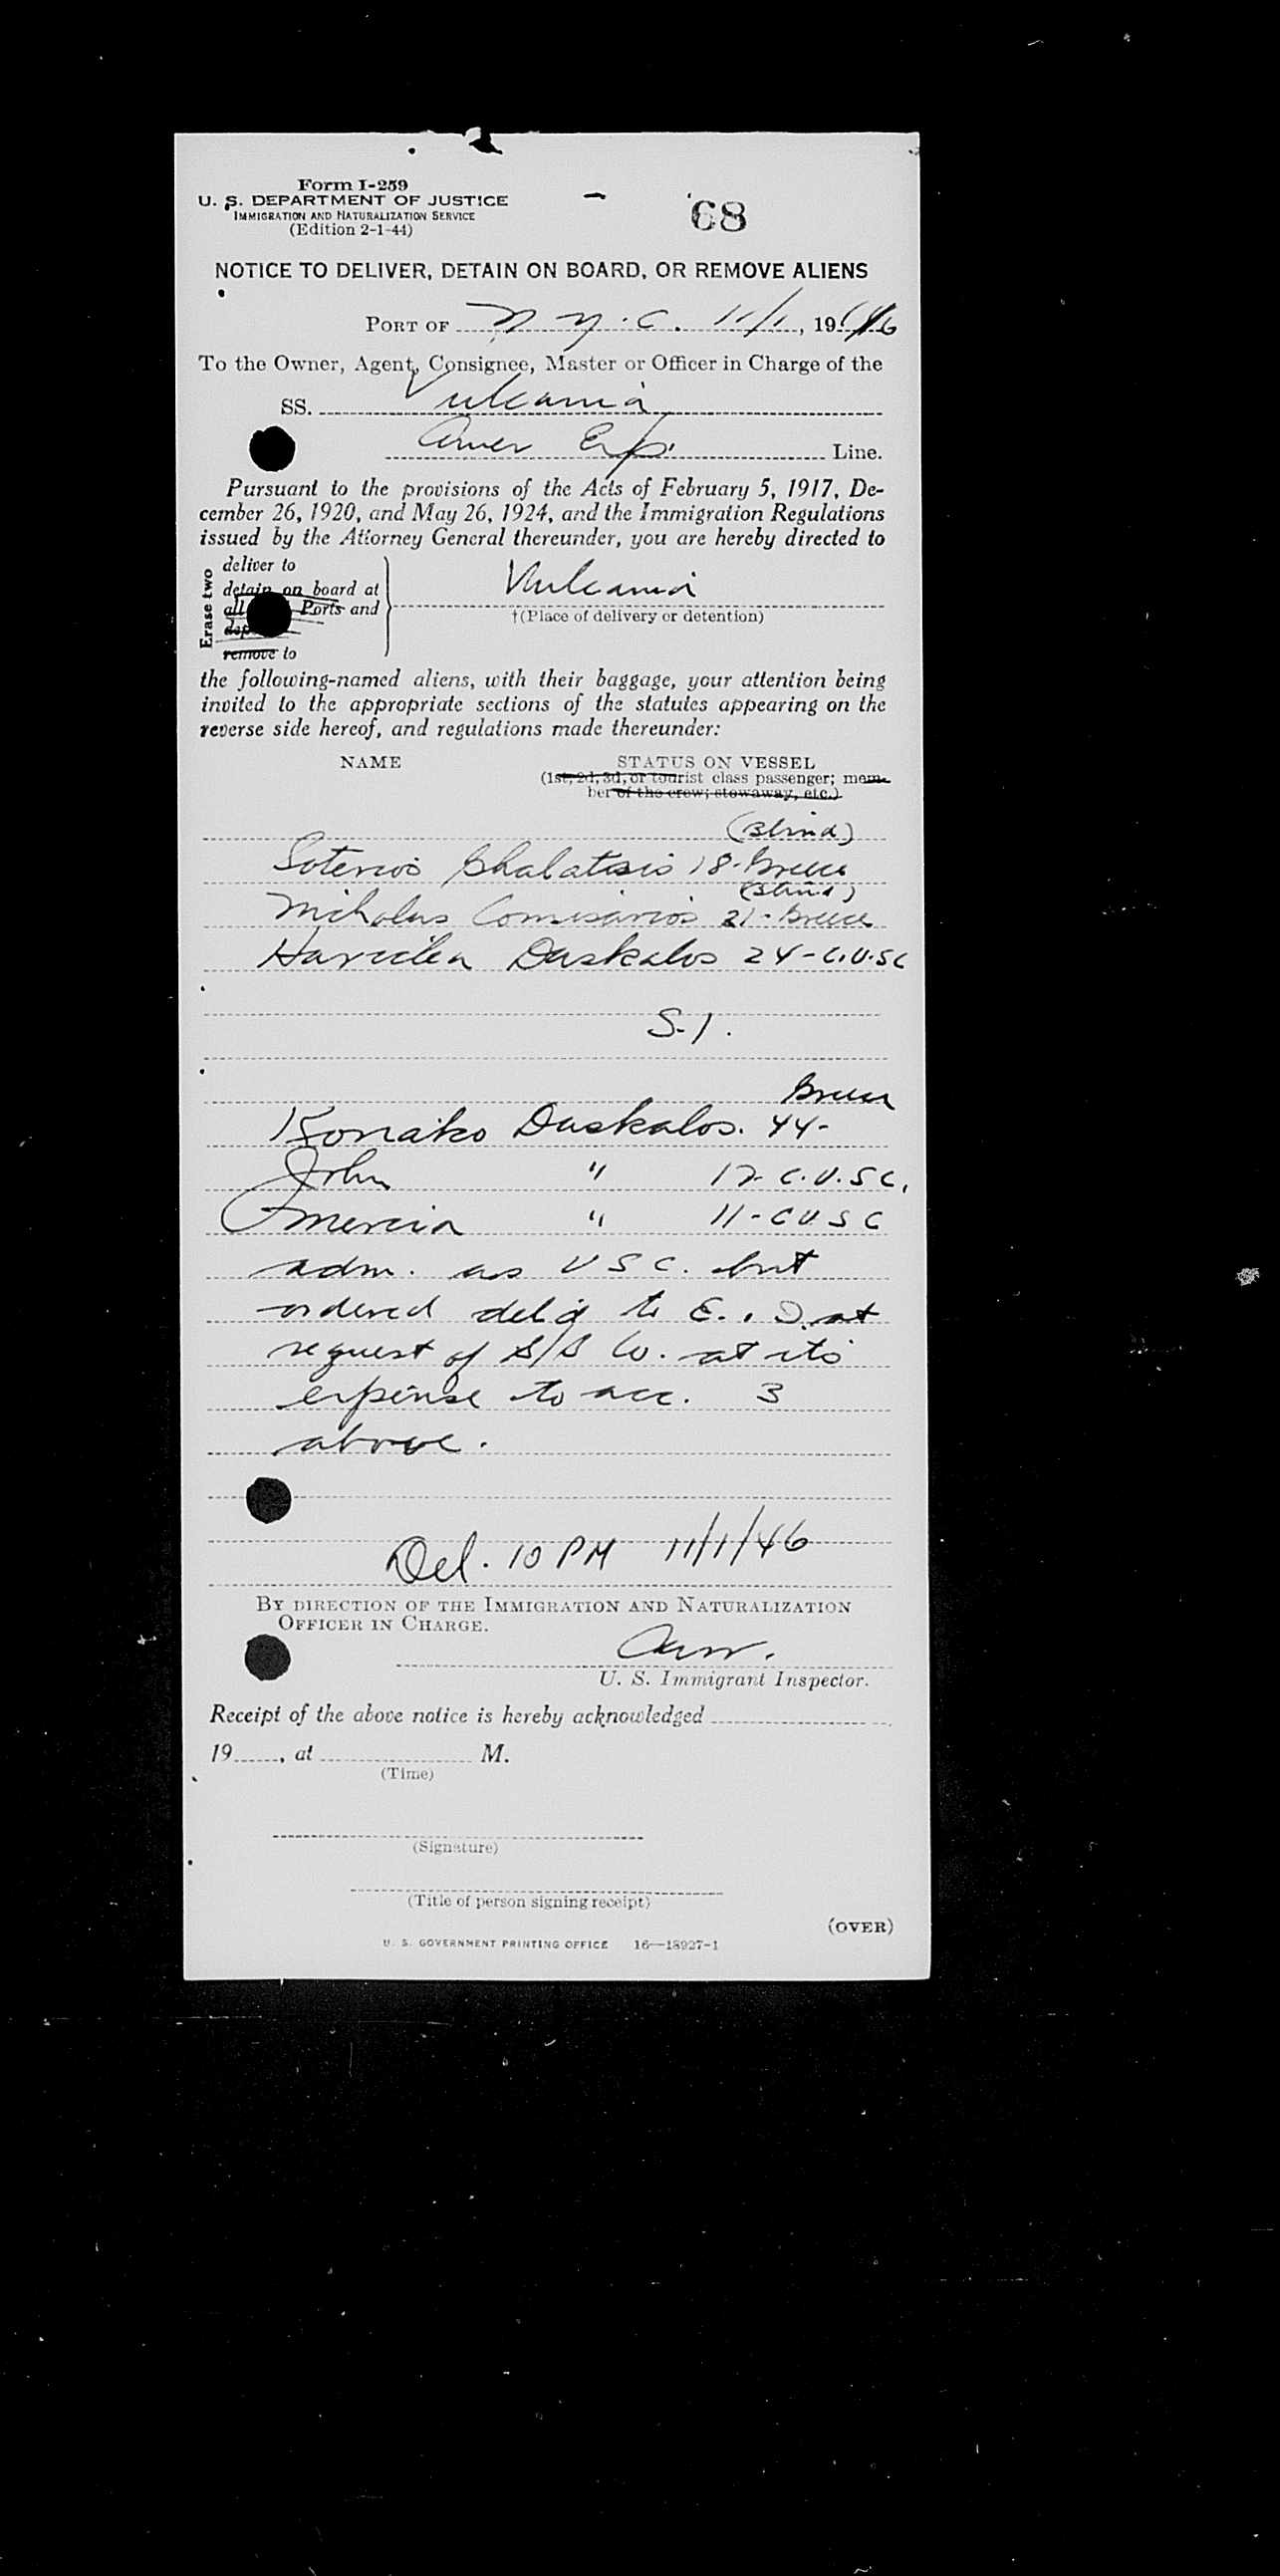 Form I-259
U. S. DEPARTMENT OF JUSTICE
IMMIGRATION AND NATURALIZATION SERVICE
(Edition 2-1-44)
68
NOTICE TO DELIVER, DETAIN ON BOARD, OR REMOVE ALIENS
PORT OF N.Y.C. 11/1, 1946
To the Owner, Agent, Consignee, Master or Officer in Charge of the
SS. Vulcania
Amer Exp. Line.
Pursuant to the provisions of the Acts of February 5, 1917, De-
cember 26, 1920, and May 26, 1924, and the Immigration Regulations
issued by the Attorney General thereunder, you are hereby directed to
Erase two
deliver to
detain on board at
all Ports and
remove to
Vulcania
†(Place of delivery or detention)
the following-named aliens, with their baggage, your attention being
invited to the appropriate sections of the statutes appearing on the
reverse side hereof, and regulations made thereunder:
NAME STATUS ON VESSEL
(1st, 2d, 3d, or tourist class passenger; mem-
ber of the crew; stowaway, etc.)
(Blind)
Soterios 18-Greece
(Blind)
Nicholas 21-Greece
Daskalos 24-C.U.SC
S-1.
Greece
Daskalos. 44-
John " 17-C.U.SC.
" 11-CUSC
adm. as USC. but
ordered del'd to E.I. at
request of S/S Co. at its
expense to acc. 3
above.
Del. 10 PM 11/1/46
BY DIRECTION OF THE IMMIGRATION AND NATURALIZATION
OFFICER IN CHARGE.
U. S. Immigrant Inspector.
Receipt of the above notice is hereby acknowledged
19, at M.
(Time)
(Signature)
(Title of person signing receipt)
(OVER)
U. S. GOVERNMENT PRINTING OFFICE 16—18927-1